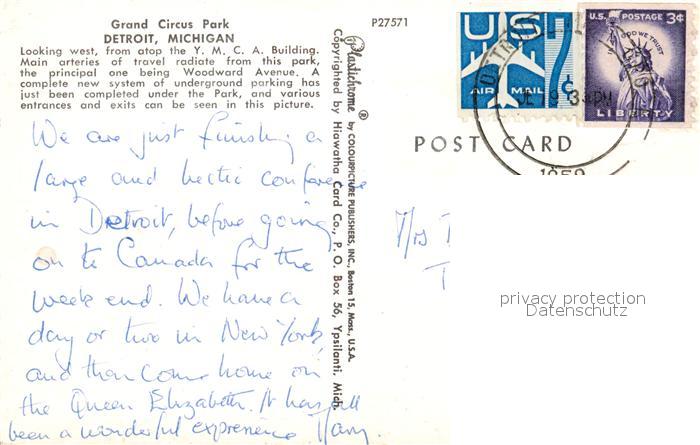 Grand Circus Park
DETROIT, MICHIGAN
Looking west, from atop the Y. M. C. A. Building.
Main arteries of travel radiate from this park,
the principal one being Woodward Avenue. A
complete new system of underground parking has
just been completed under the Park, and various
entrances and exits can be seen in this picture.
We are just finishing a
large and hectic conference
in Detroit, before going
on to Canada for the
week end. We have a
day or two in New York,
and then come home on
the Queen Elizabeth. It has all
been a wonderful experience
P27571
Plastichrome ® by COLOURPICTURE PUBLISHERS, INC., Boston 15, Mass., U.S.A.
Copyrighted by Hiawatha Card Co., P. O. Box 56, Ypsilanti, Mich.
US
AIR MAIL
7¢
U.S. POSTAGE 3¢
IN GOD WE TRUST
LIBERTY
DETROIT
19 3 PM
1959
POST CARD
Mrs T
T
privacy protection
Datenschutz